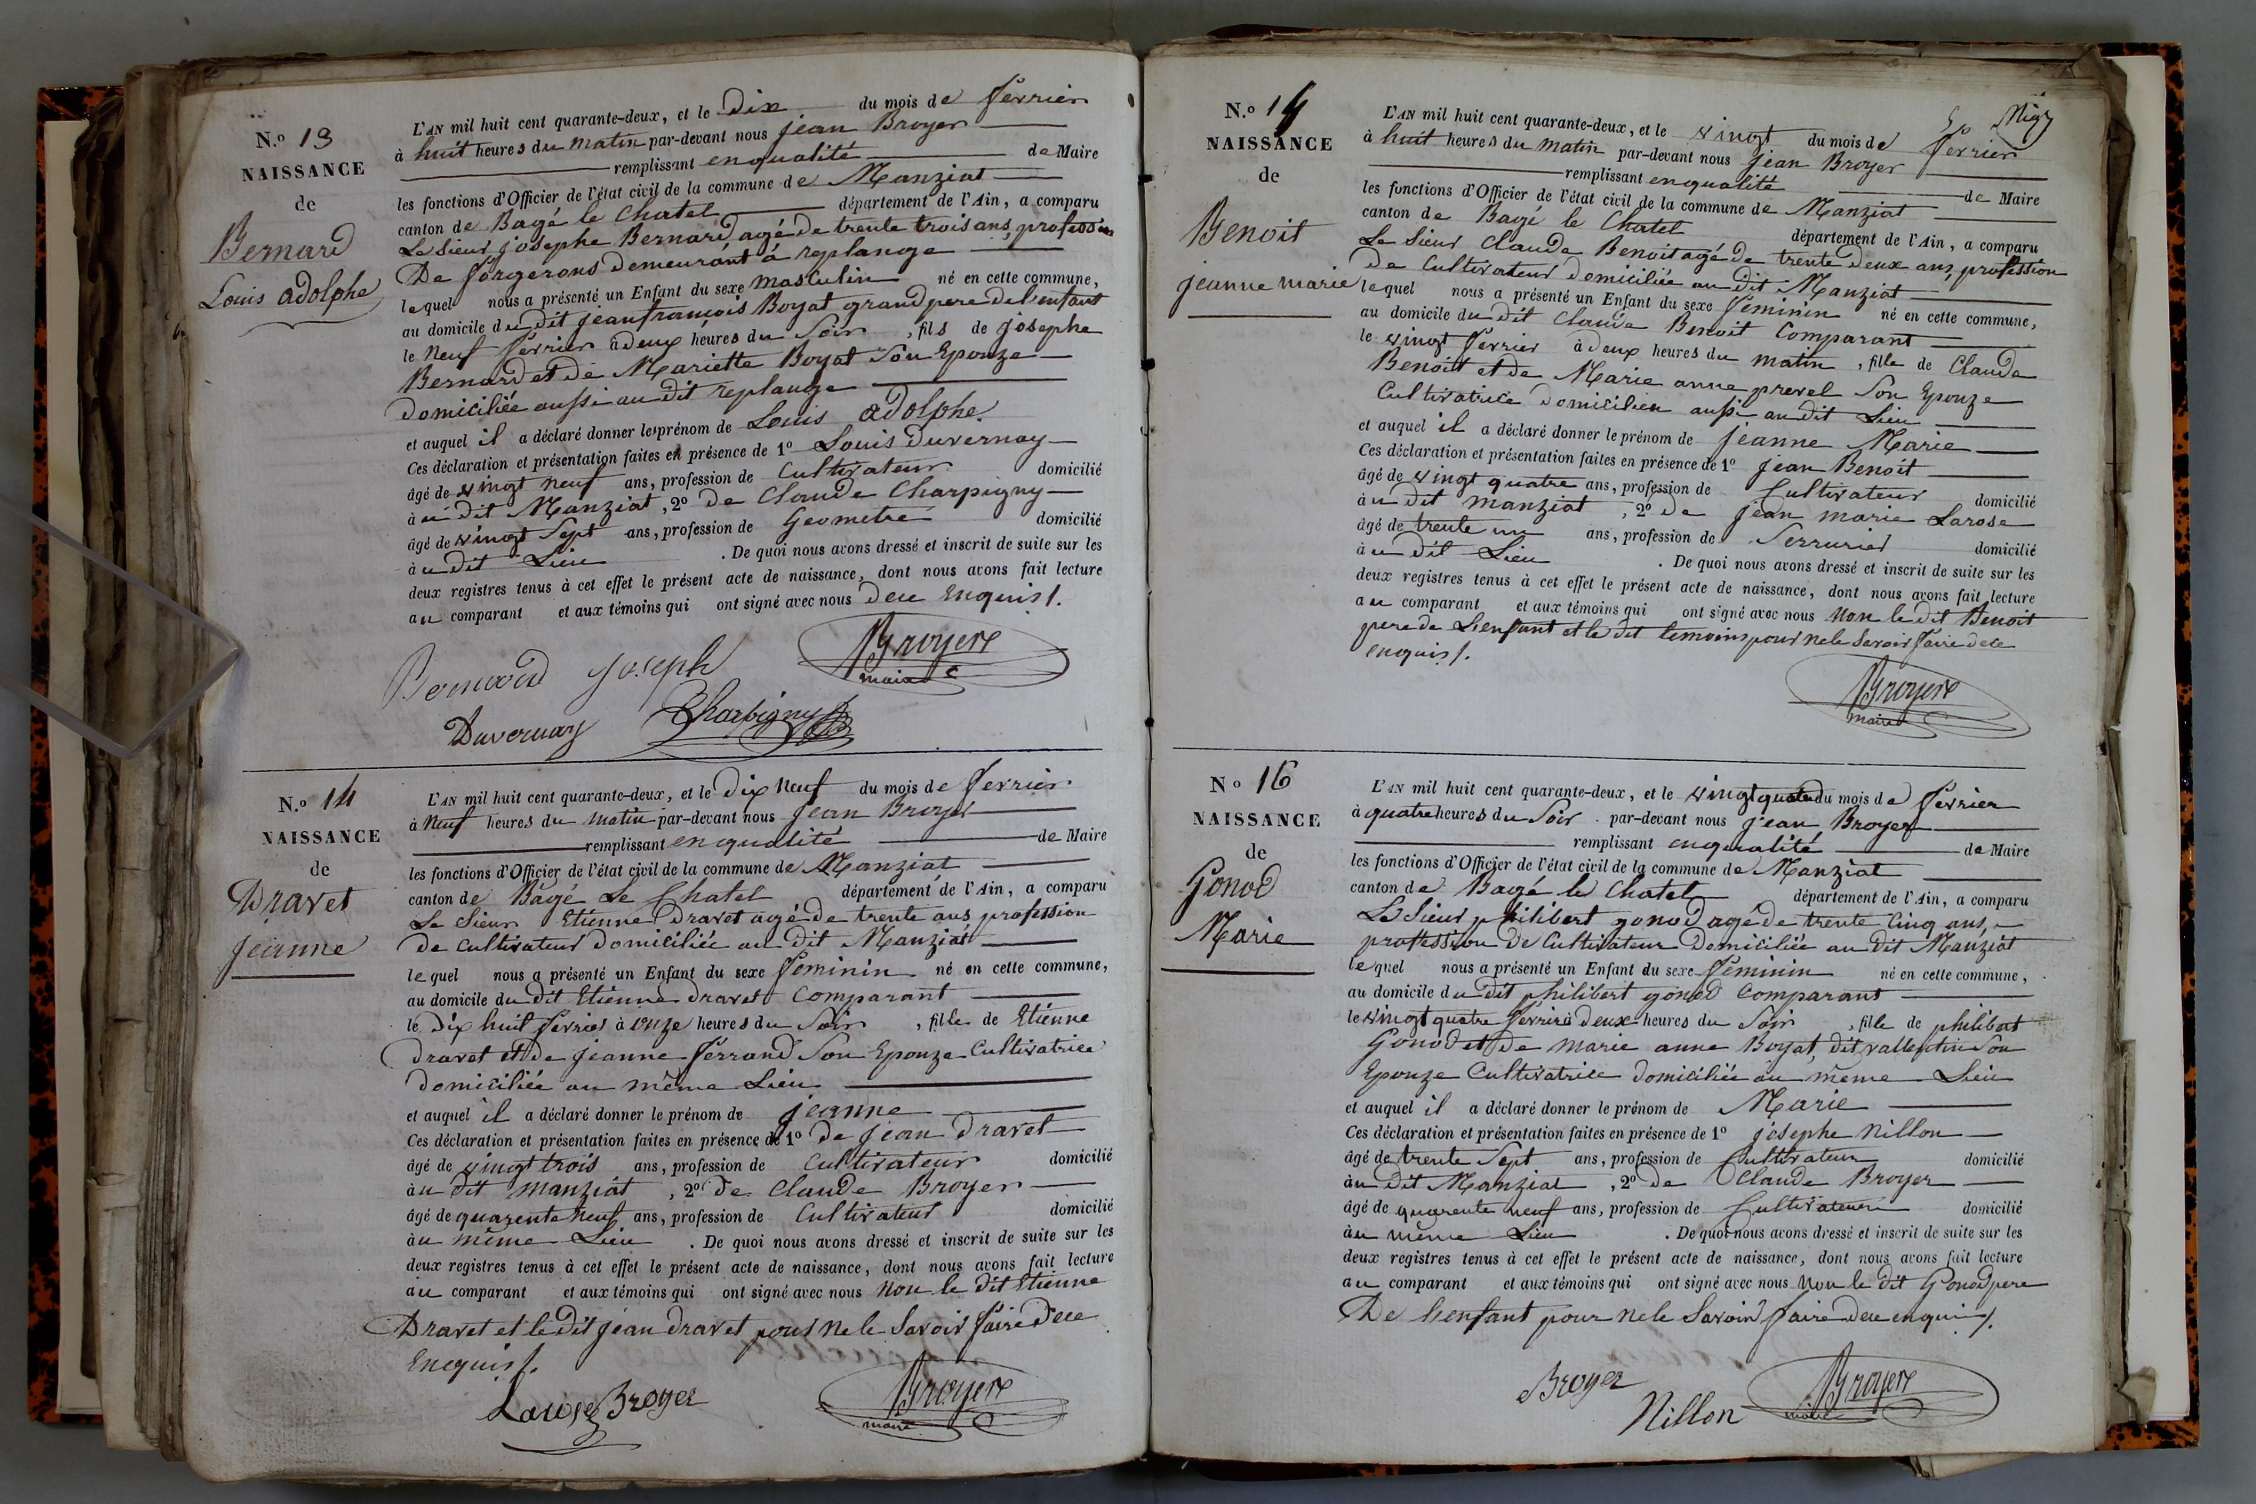 N.º 13
NAISSANCE
de
Bernard
Louis adolphe
L'AN mil huit cent quarante-deux, et le Dix du mois de fevrier
à huit heures du matin par-devant nous jean Broyer
remplissant enqualité de Maire
les fonctions d'Officier de l'état civil de la commune de Manziat
canton de Bagé le Chatel département de l'Ain, a comparu
Le Sieur josephe Bernard agé de trente trois ans, profession
De forgerons demeurant à replange
lequel nous a présenté un Enfant du sexe masculin né en cette commune,
au domicile du dit jean francois Boyat grand pere de l'enfant
le Neuf fevrier à deux heures du Soir, fils de josephe
Bernard et de Mariette Boyat Son Epouze
domiciliée aussi au dit replange
et auquel il a déclaré donner les prénom de Louis adolphe
Ces déclaration et présentation faites en présence de 1º Louis Duvernay
âgé de vingt neuf ans, profession de Cultivateur domicilié
à u dit Manziat, 2º de Claude Charpigny
âgé de vingt Sept ans, profession de Geometre domicilié
à u dit Lieu . De quoi nous avons dressé et inscrit de suite sur les
deux registres tenus à cet effet le présent acte de naissance, dont nous avons fait lecture
au comparant et aux témoins qui ont signé avec nous dece Enquis /.
Bernard Joseph Broyere
maire
Duvernay Charpigny
N.º 14
NAISSANCE
de
Dravet
jeanne
L'AN mil huit cent quarante-deux, et le Dix Neuf du mois de fevrier
à Neuf heures du matin par-devant nous jean Broyer
remplissant enqualité de Maire
les fonctions d'Officier de l'état civil de la commune de Manziat
canton de Bagé Le Chatel département de l'Ain, a comparu
Le Sieur Etienne Dravet agé de trente ans profession
de cultivateur domiciliée au dit Manziat
lequel nous a présenté un Enfant du sexe feminin né en cette commune,
au domicile du dit Etienne dravet Comparant
le Dix huit fevrier à onze heures du Soir, fille de Etienne
Dravet et de jeanne ferrand Son Epouze Cultivatrice
domiciliée au même Lieu
et auquel il a déclaré donner le prénom de jeanne
Ces déclaration et présentation faites en présence de 1º de jean Dravet
âgé de vingt trois ans, profession de cultivateur domicilié
à u dit manziat, 2º de Claude Broyer
âgé de quarente Neuf ans, profession de Cultivateur domicilié
à u même Lieu . De quoi nous avons dressé et inscrit de suite sur les
deux registres tenus à cet effet le présent acte de naissance, dont nous avons fait lecture
au comparant et aux témoins qui ont signé avec nous Non le dit Etienne
Dravet et le dit jean dravet pour Ne le Savoir faire Dece
Enquis /.
Broyer Broyere
maire
N.º 15
NAISSANCE
de
Benoit
jeanne marie
L'AN mil huit cent quarante-deux, et le vingt du mois de fevrier
à huit heures du matin par-devant nous jean Broyer
remplissant enqualité de Maire
les fonctions d'Officier de l'état civil de la commune de Manziat
canton de Bagé le Chatel département de l'Ain, a comparu
Le Sieur Claude Benoit agé de trente deux ans, profession
de Cultivateur domiciliée au dit Manziat
lequel nous a présenté un Enfant du sexe feminin né en cette commune,
au domicile du dit Claude Benoit Comparant
le vingt fevrier à deux heures du matin, fille de Claude
Benoitt et de Marie anne prevel Son Epouze
Cultivatrice domicilieu aussi au dit Lieu
et auquel il a déclaré donner le prénom de jeanne Marie
Ces déclaration et présentation faites en présence de 1º jean Benoit
âgé de vingt quatre ans, profession de Cultivateur domicilié
à u dit manziat, 2º de jean marie Larose
âgé de trente un ans, profession de Serrurier domicilié
à u dit Lieu . De quoi nous avons dressé et inscrit de suite sur les
deux registres tenus à cet effet le présent acte de naissance, dont nous avons fait lecture
au comparant et aux témoins qui ont signé avec nous Non le dit Benoit
pere de L'enfant et le dit temoins pour ne le Savoir faire dece
enquis /.
Broyere
maire
Nº 16
NAISSANCE
de
Gonod
Marie
L'AN mil huit cent quarante-deux, et le vingt quatre du mois de fevrier
à quatre heures du Soir par-devant nous jean Broyer
remplissant enqualité de Maire
les fonctions d'Officier de l'état civil de la commune de Manziat
canton de Bagé le Chatel département de l'Ain, a comparu
Le Sieur philibert gonod agé de trente Cinq ans,
proffession De Cultivateur Domiciliée au dit Manziat
lequel nous a présenté un Enfant du sexe feminin né en cette commune,
au domicile du dit philibert gonod Comparant
le vingt quatre fevrier à deux heures du Soir, fille de philibert
Gonod et de marie anne Boyat, dit vallentin Son
Epouze Cultivatrice domiciliée au même Lieu
et auquel il a déclaré donner le prénom de Marie
Ces déclaration et présentation faites en présence de 1º josephe Nillon
âgé de trente Sept ans, profession de Cultivateur domicilié
à u dit Manziat, 2º de Claude Broyer
âgé de quarente neuf ans, profession de Cultivateur domicilié
à u même Lieu . De quoi nous avons dressé et inscrit de suite sur les
deux registres tenus à cet effet le présent acte de naissance, dont nous avons fait lecture
au comparant et aux témoins qui ont signé avec nous Non le dit Gonod pere
De L'enfant pour ne le Savoir faire dece enquis /.
Broyer Nillon Broyere
maire